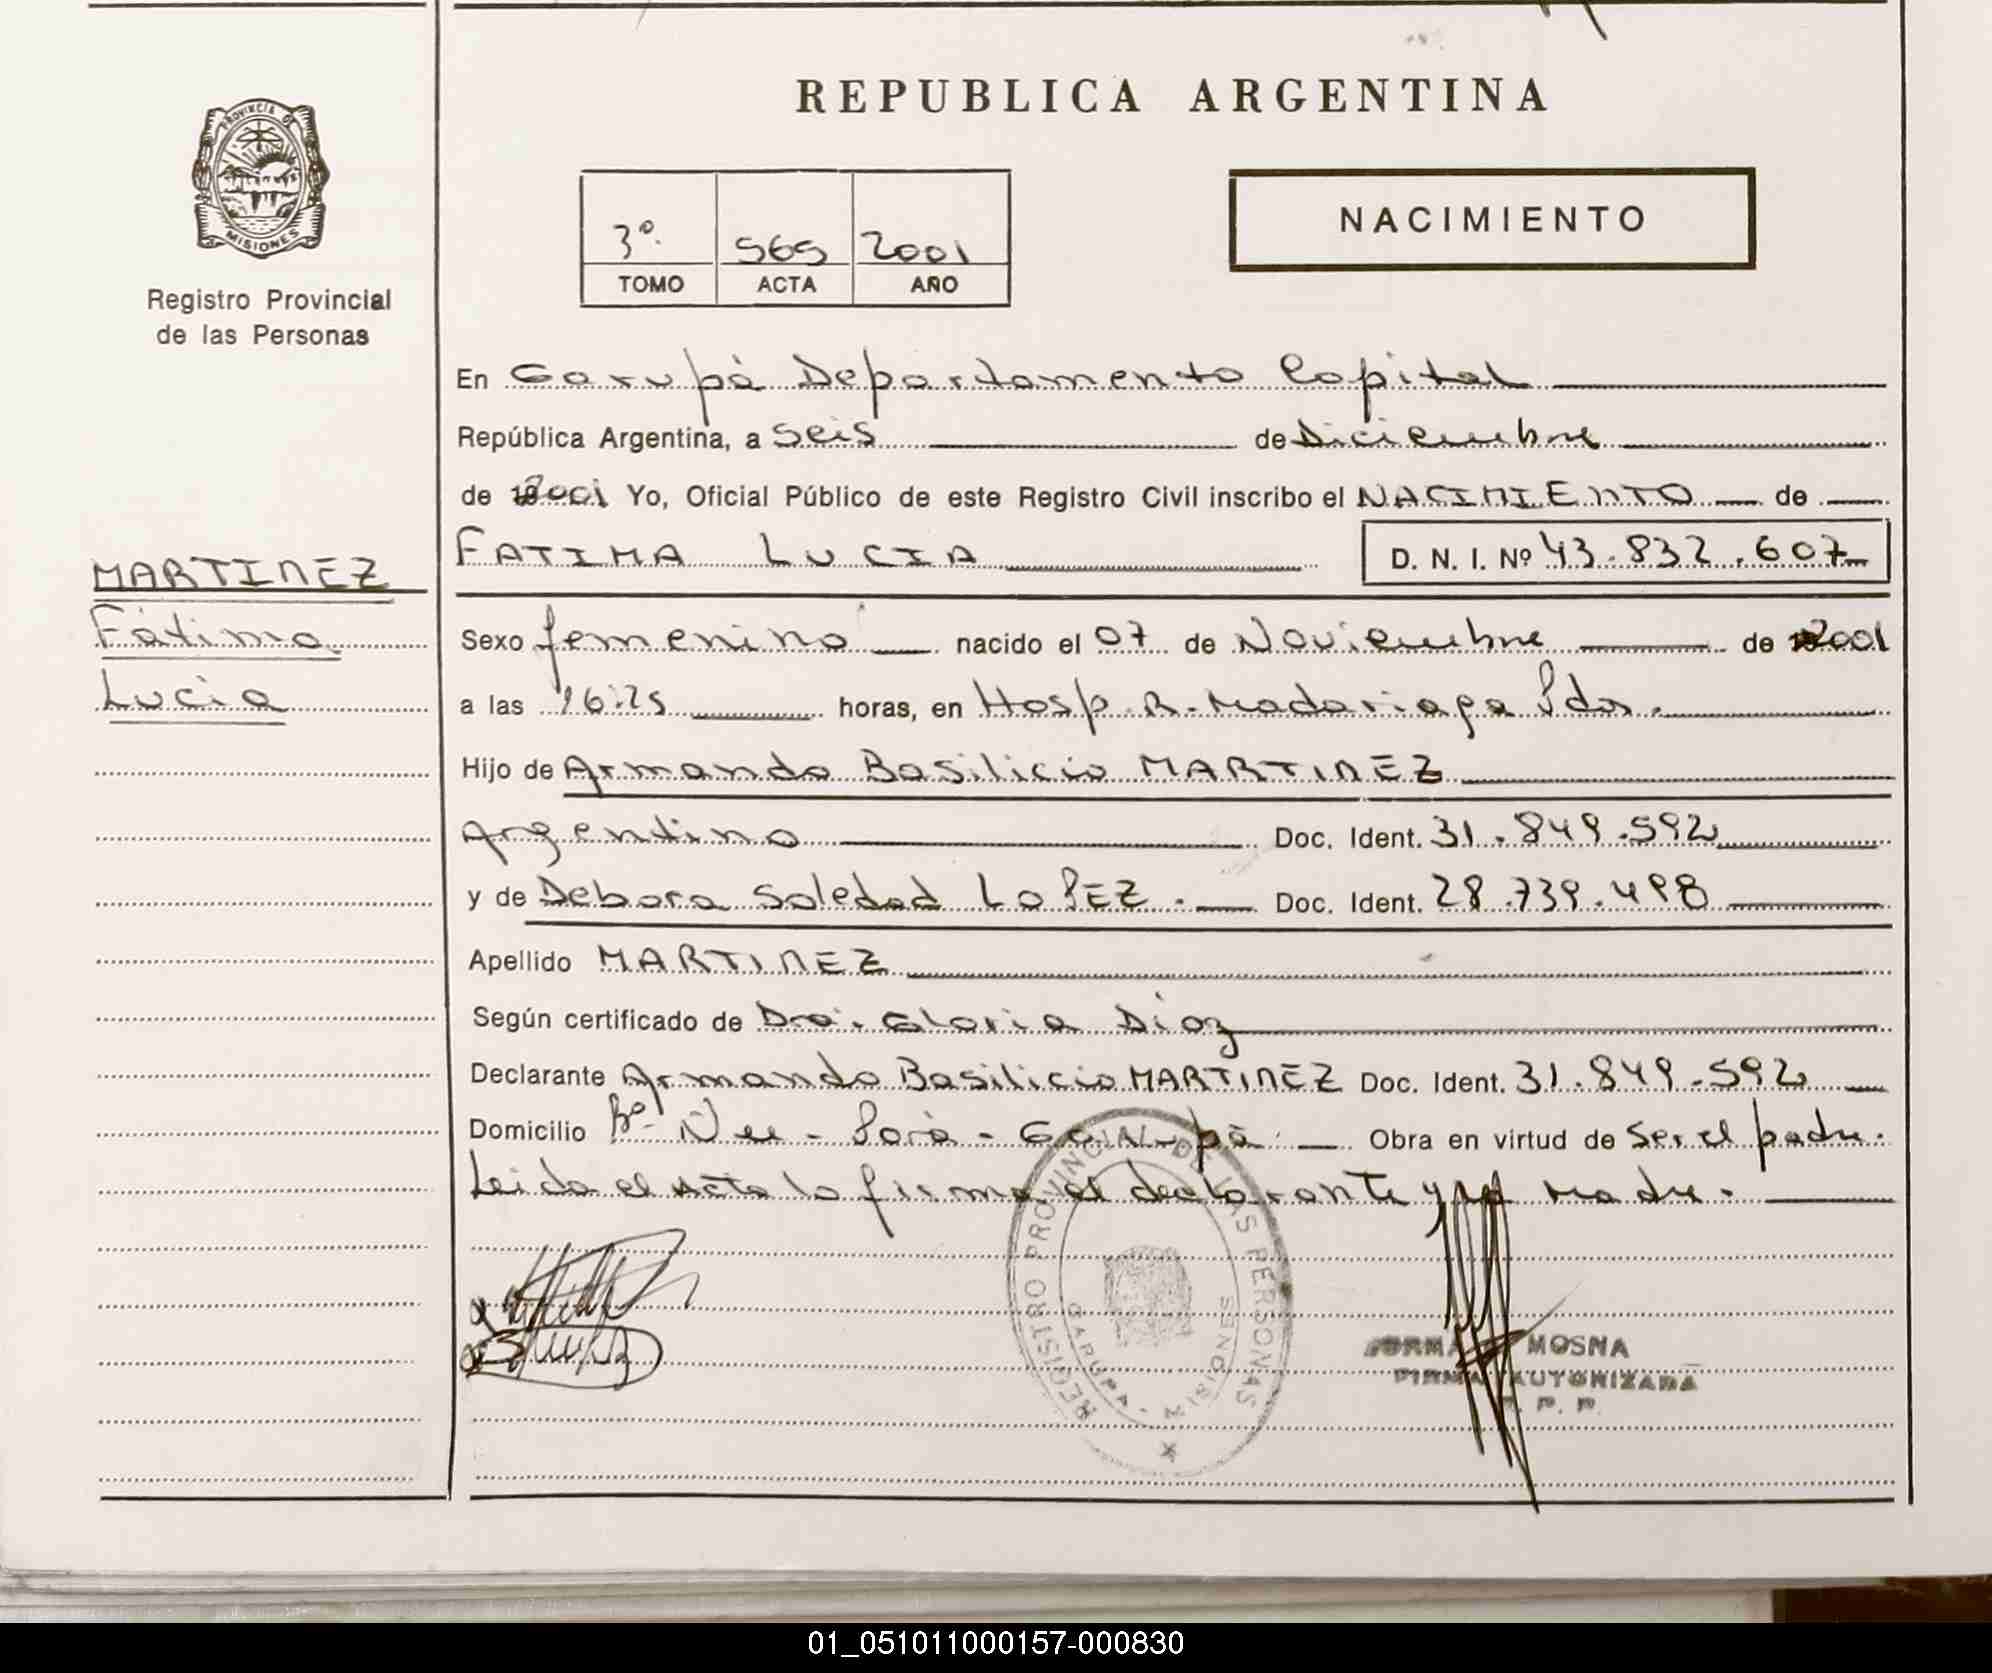 REPUBLICA ARGENTINA
PROVINCIA DE
MISIONES
Registro Provincial
de las Personas
3º. 565 2001
TOMO ACTA AÑO
NACIMIENTO
En Garupà Departamento Capital
República Argentina, a Seis de Diciembre
de 2001 Yo, Oficial Público de este Registro Civil inscribo el NACIMIENTO de
MARTINEZ
Fátima
Lucia
FATIMA LUCIA D. N. I. Nº 43.832.607
Sexo femenino nacido el 07 de Noviembre de 2001
a las 16:25 horas, en Hosp. R. Madariaga Pdas.
Hijo de Armando Basilicio MARTINEZ
Argentino Doc. Ident. 31.849.592
y de Debora Soledad LOPEZ.- Doc. Ident. 28.739.498
Apellido MARTINEZ
Según certificado de Dra. Gloria Diaz
Declarante Armando Basilicio MARTINEZ Doc. Ident. 31.849.592
Domicilio Bº Ñu - Porà - Garupà Obra en virtud de Ser el padre.
Leida el Acta la firma el declarante y la Madre.
REGISTRO PROVINCIAL DE LAS PERSONAS
GARUPA - MISIONES
NORMA MOSNA
FIRMA AUTORIZADA
R. P. P.
01_051011000157-000830